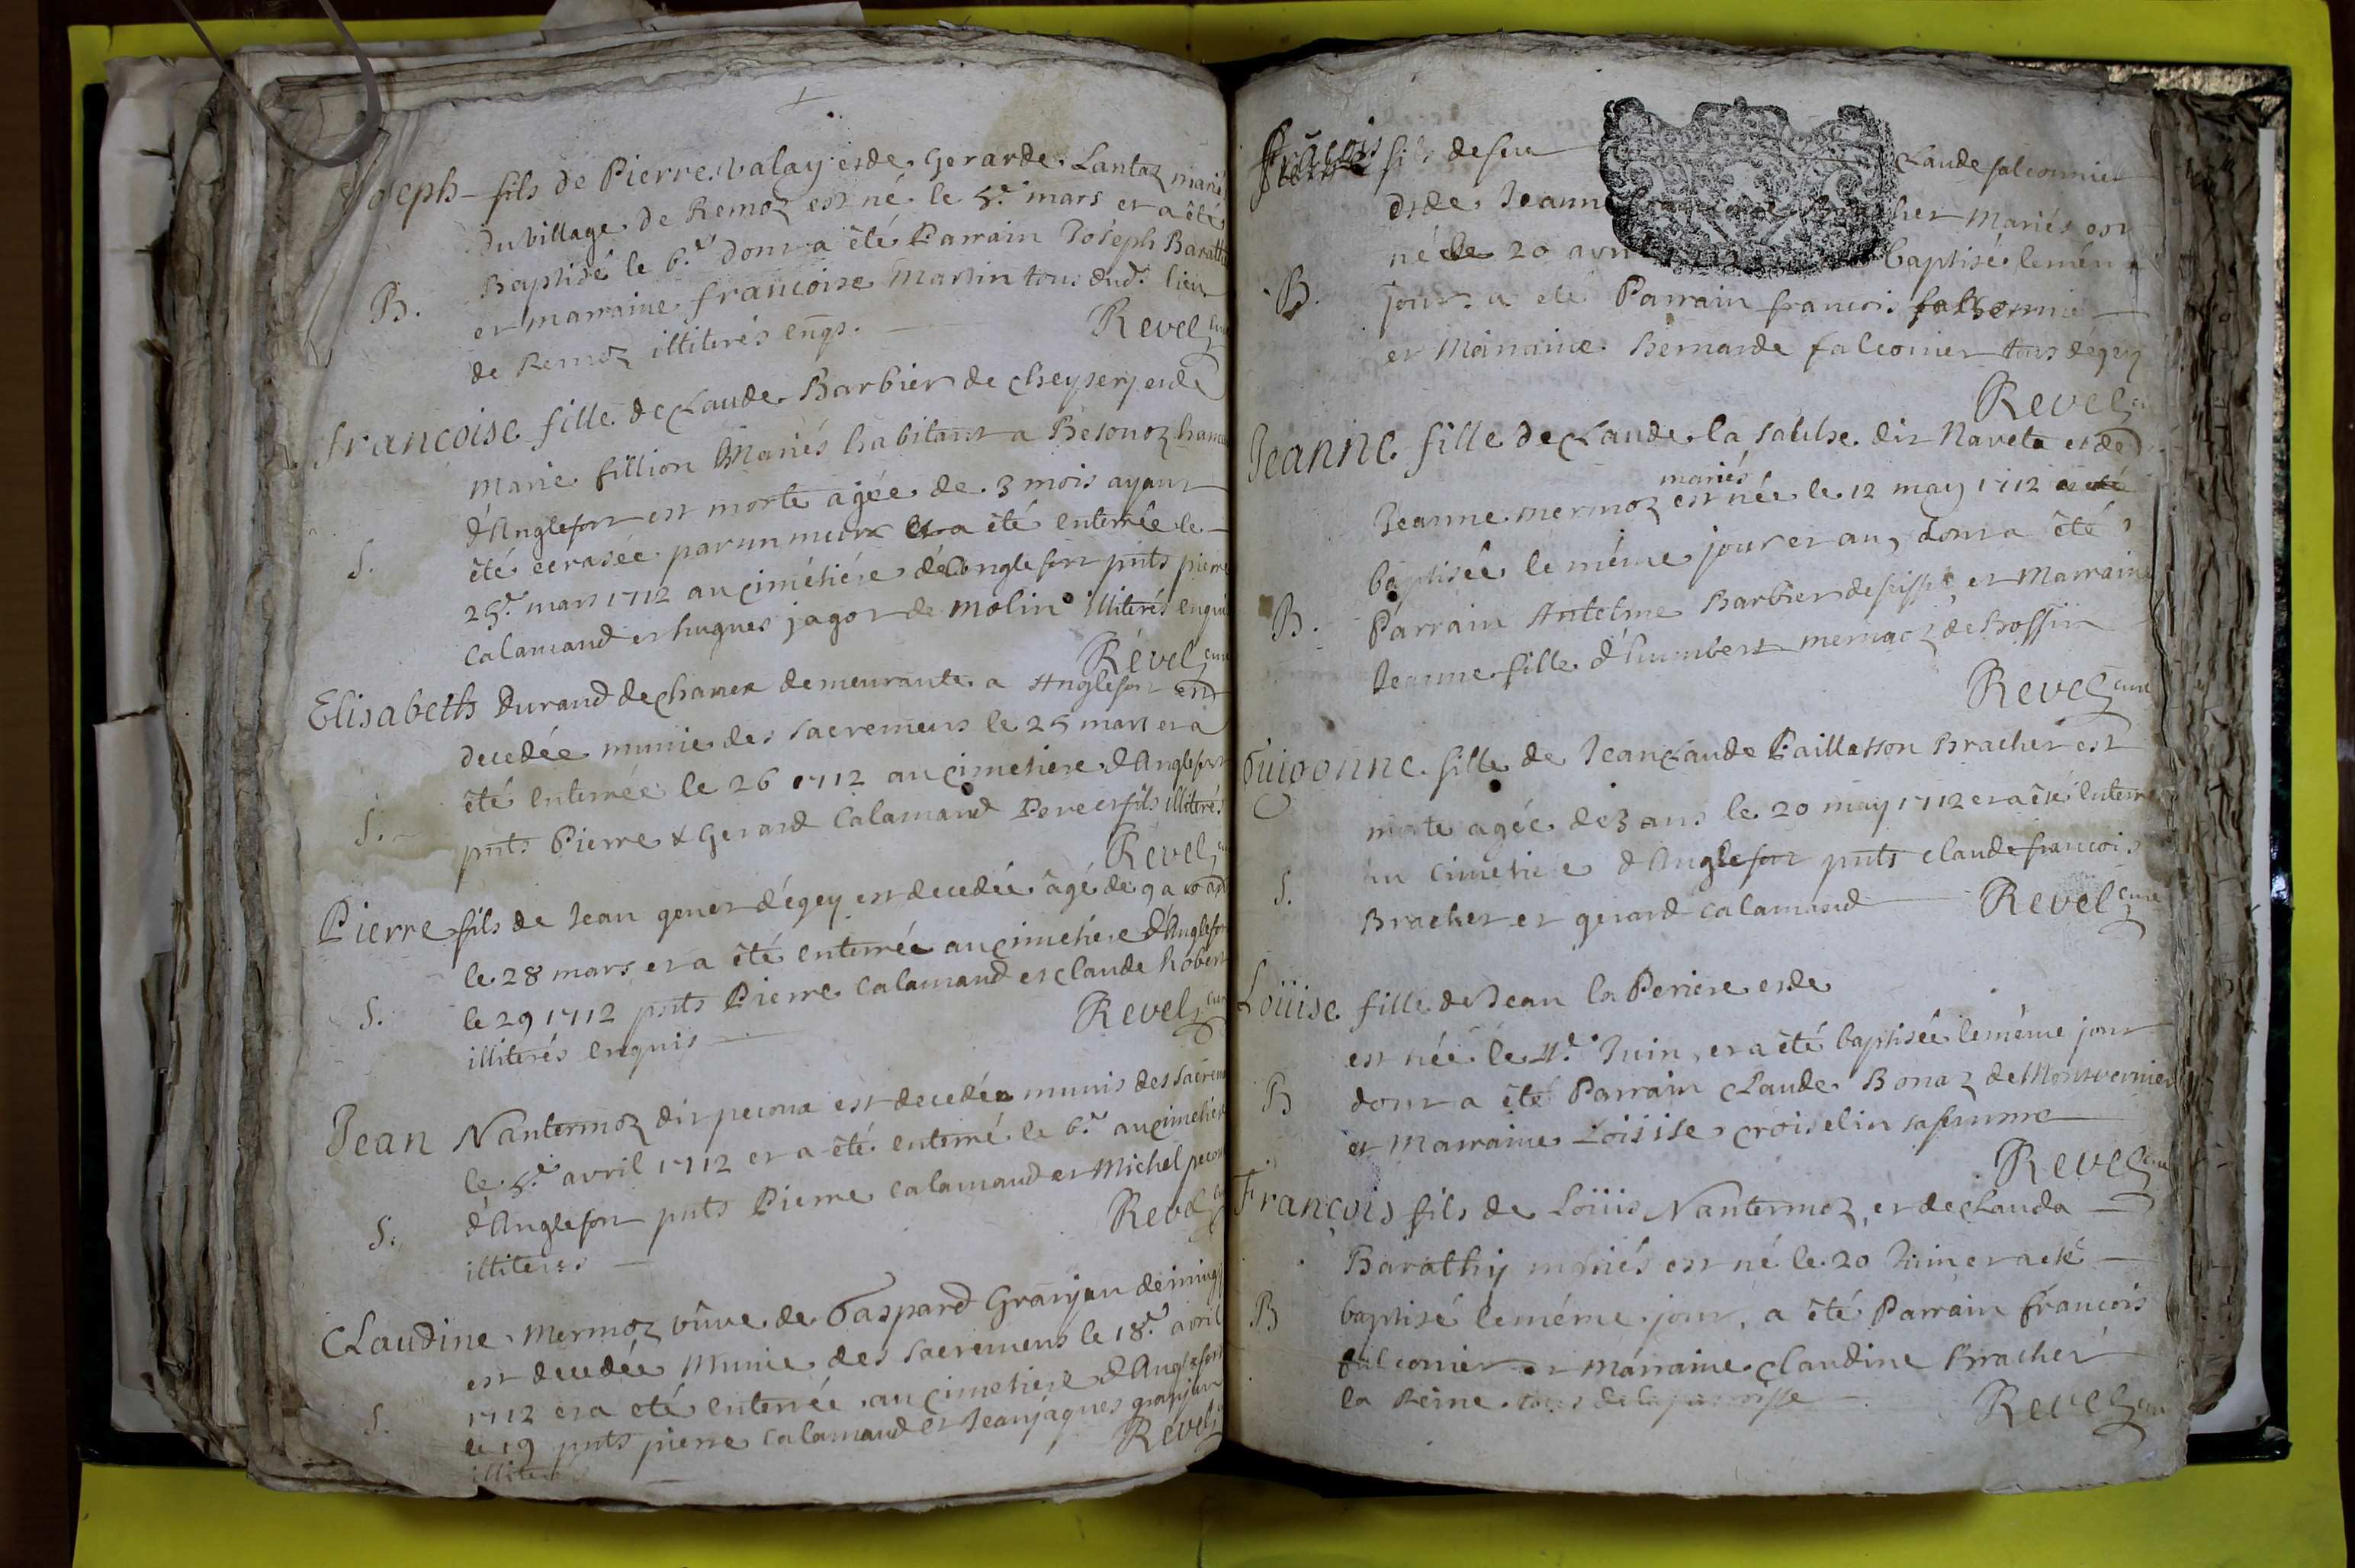 Joseph fils de Pierre balay et de Gerarde Lantaz mariés
du village de Remoz est né le 5.e mars et a êté
Baptisé le 6.e dont a êté Parrain Joseph Baratti
B.
et marraine francoise Martin tous dud. lieu
de Remoz illiterés enqs.
Revel curé
francoise fille de Claude Barbier de cheysery et de
Marie fillion Mariés habitant a Besonoz
d'Anglefort est morte agée de 3 mois ayant
S.
êté ecrasée par un meur et a êté enterrée le
25.e mars 1712 au cimétiére d'Anglefort pnts pierre
Calamand et hugues jagot de molin illiterés enquis
Revel curé
Elisabeth Durand de chanex demeurante a Anglefort est
decedée munie des sacremens le 25 mars et a
êté enterrée le 26 1712 au cimetiere d'Anglefort
S.
pnts Pierre & Gerard Calamand Pere et fils illiterés
Revel
Pierre fils de Jean genet dégey est decedée âgé de 9 a 10 ans
le 28 mars et a êté enterrée au cimetiere d'Anglefort
S.
le 29 1712 pnts Pierre Calamand et Claude Robert
illiterés enquis
Revel curé
Jean Nantermoz dit pecoux est decedée munis des sacrem
le 5.e avril 1712 et a êté enterré le 6.e au cimetiere
S.
d'Anglefort pnts Pierre Calamand et Michel pecoux
illiterés
Revel
Claudine Mermoz vûve de Gaspard Granjan de
est decedée Munie des sacremens le 18.e avril
1712 et a eté enterrée au cimetiere d'Anglefort
S.
le 19 pnts pierre Calamand et Jeanjaques granjan
illiterés
Revel
francois fils de feu Claude falconnier
et de Jeanne Mariés est
né le 20 avril baptisée le même
B.
jour. a eté Parrain francois falconnier
et Marraine Bernarde falconier tous dégey
Revel
Jeanne fille de Claude la saulse dit Naveta et de
mariés
Jeanne mermoz est née le 12 may 1712 a eté
baptisée le même jour et an, dont a êté
B.
Parrain Antelme Barbier de et Marraine
Jeanne fille d'humbert mermoz de
Revel curé
Guigonne fille de Jean Claude Paillasson Bracher est
morte agée de 3 ans le 20 may 1712 et a êté enterrée
S.
au cimetiere d'Anglefort pnts claude francois
Bracher et gerard calamand Revel curé
Loüise fille de Jean la Periere et de
est née le 4.e Juin, et a êté baptisée le même jour
B
dont a êté Parrain Claude Bonaz de Montvernier
et Marraine Loüise croiselin sa femme
Revel curé
François fils de Loüis Nantermoz, et de Clauda
Barathiy mariés est né le 20 Juin et a eté
B
baptisé le méme jour, a êté Parrain francois
falconier et Marraine Claudine Bracher
la Reine tous de la parroisse
Revel curé